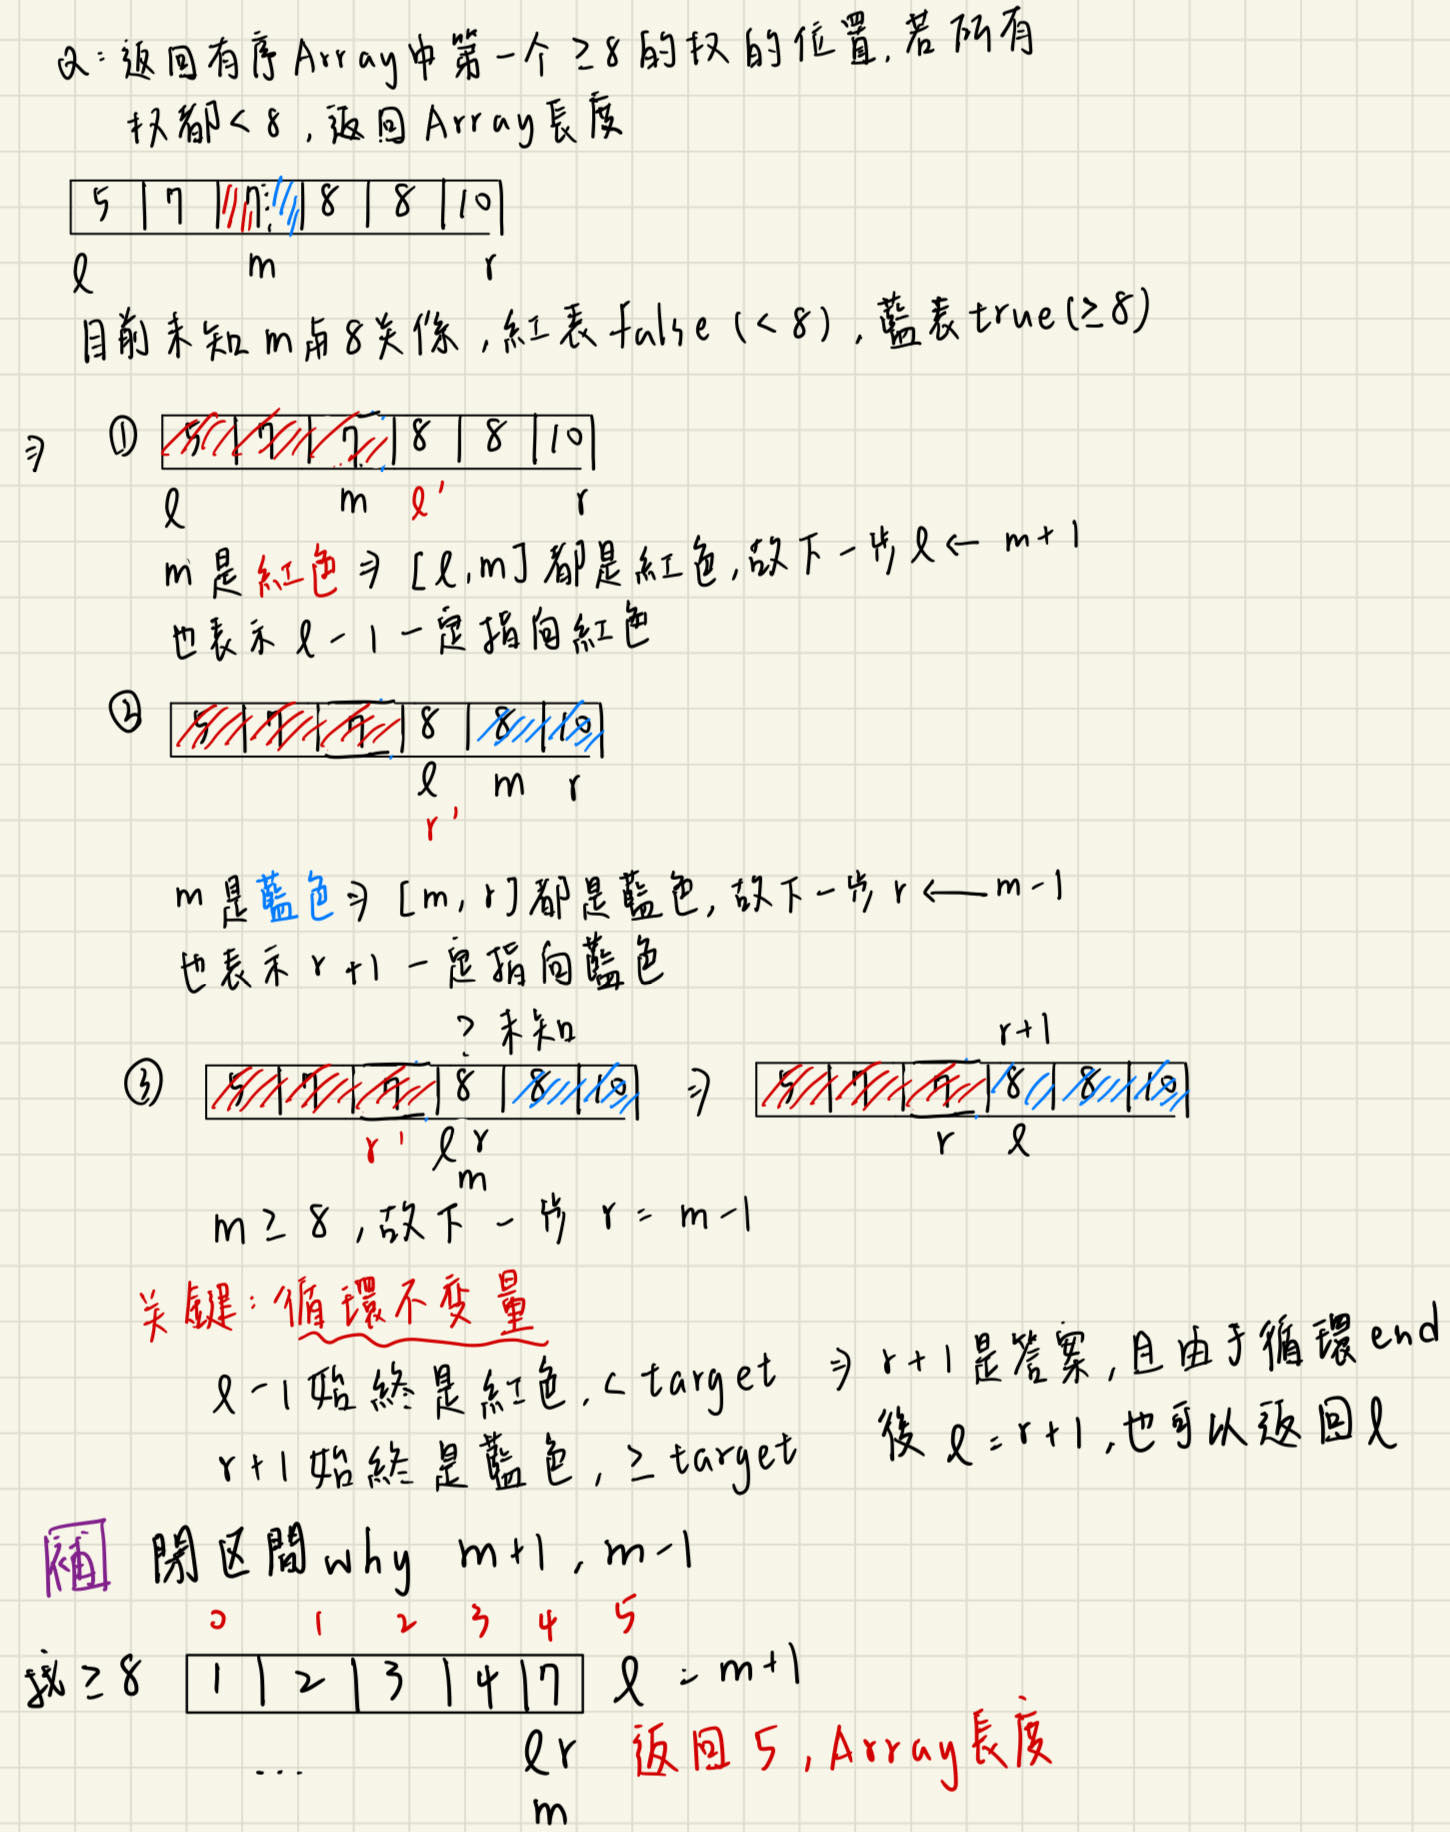 Q:返回有序Array中第一个≥8的权的位置,若所有
权都<8,返回Array長度
5 7 7 8 8 10
l m r
目前未知m与8关係,紅表false(<8),藍表true(≥8)
⇒ ① 5 7 7 8 8 10
l m l' r
m是紅色⇒[l,m]都是紅色,故下一步l←m+1
也表示l-1一定指向紅色
② 5 7 7 8 8 10
l m r
r'
m是藍色⇒[m,r]都是藍色,故下一步r←m-1
也表示r+1一定指向藍色
?未知 r+1
③ 5 7 7 8 8 10 ⇒ 5 7 7 8 8 10
r' l r r l
m
m≥8,故下一步r=m-1
关鍵:循環不变量
l-1始終是紅色,<target ⇒r+1是答案,且由于循環end
r+1始終是藍色,≥target 後l=r+1,也可以返回l
補 閉区間why m+1,m-1
0 1 2 3 4 5
找≥8 1 2 3 4 7 l=m+1
... l r 返回5,Array長度
m